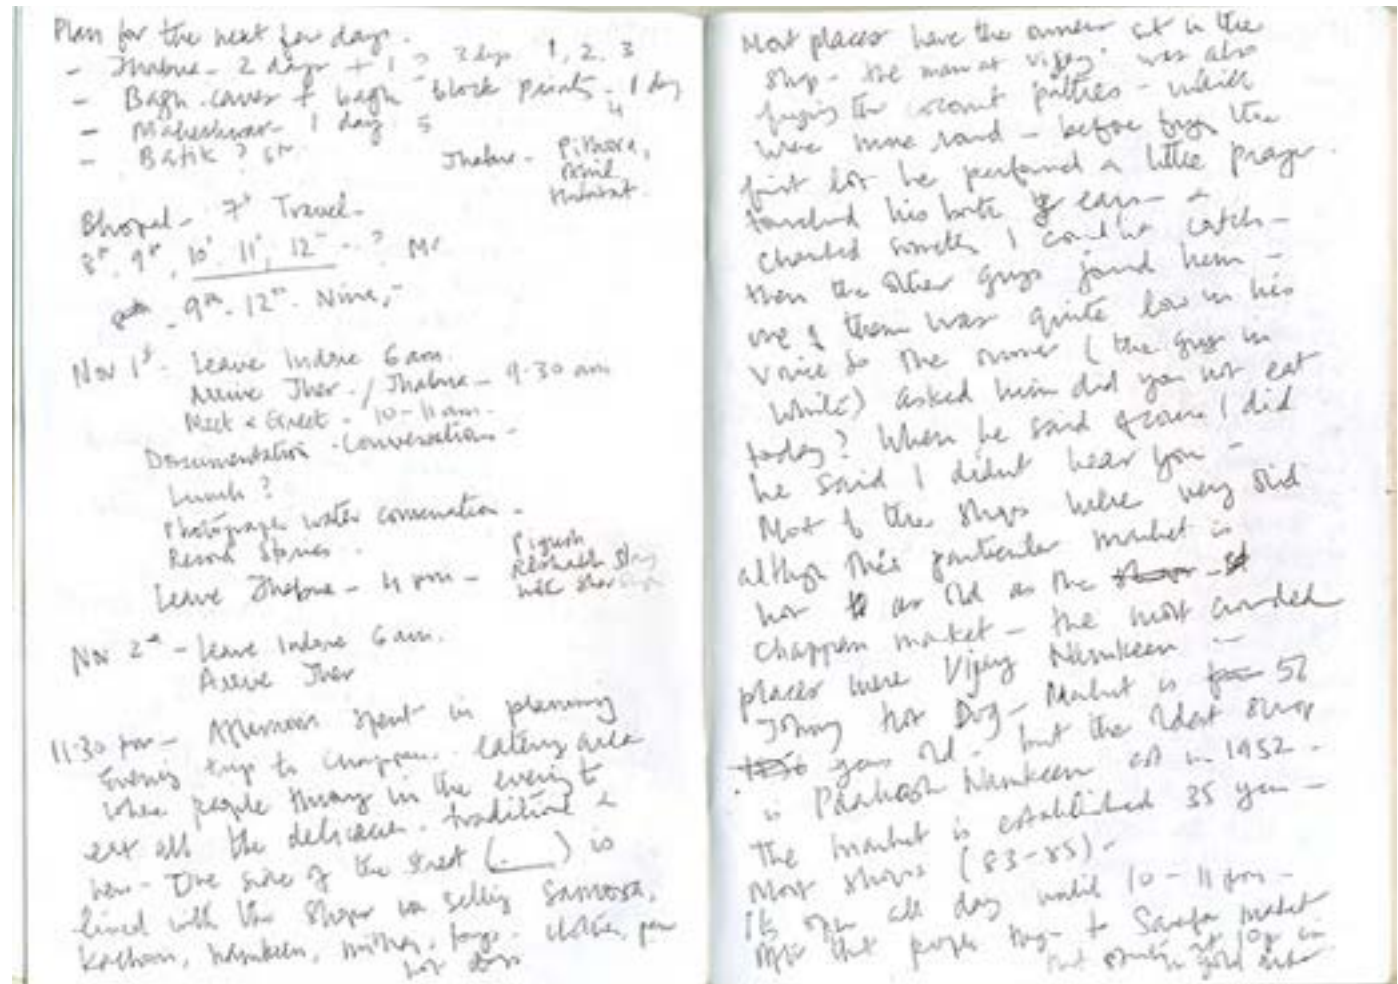 Plan for the next few days.
- Jhabua - 2 days + 1 → 3 days 1, 2, 3
- Bagh caves + bagh block prints - 1 day
4
- Maheshwar - 1 day 5
- Batik ? 6th
Jhabua - Pithora,
Bhopal - 7th Travel -
8th, 9th, 10th, 11th, 12th - ?
9th - 12th -
Nov 1st - Leave Indore 6 am.
Arrive Jher / Jhabua - 9.30 am
Meet & Greet - 10 - 11 am -
Documentation - Conversations -
Lunch ?
Photograph water conservation -
Record Stories -
Leave Jhabua - 4 pm -
Nov 2nd - Leave Indore 6 am.
Arrive Jher
11.30 pm - Afternoon spent in planning
Evening trip to Chappan - Eating area
where people throng in the evening to
eat all the delicacies - traditional &
new - One side of the street ( ) is
lined with the shops selling Samosa,
kachori, namkeen, clothes,
hot dogs
Most places have the owner sit in the
shop - the man at Vijay was also
frying the coconut patties - which
were more round - before frying the
first lot he performed a little prayer.
touched his both ears - +
chanted something I couldn't catch -
then the other guys joined him -
one of them was quite low in his
voice so the owner (the guy in
white) asked him did you not eat
today? When he said of course I did
he said I didn't hear you -
Most of the shops were very old
although this particular market is
not as old as the
Chappan market - the most crowded
places were Vijay Namkeen -
Johny Hot Dog - Market is 52
years old - but the oldest shop
is Prakash Namkeen est in 1952 -
The market is established 35 years -
Most shops (83-85) -
Its open all day until 10 - 11 pm -
After that people to Sarafa market